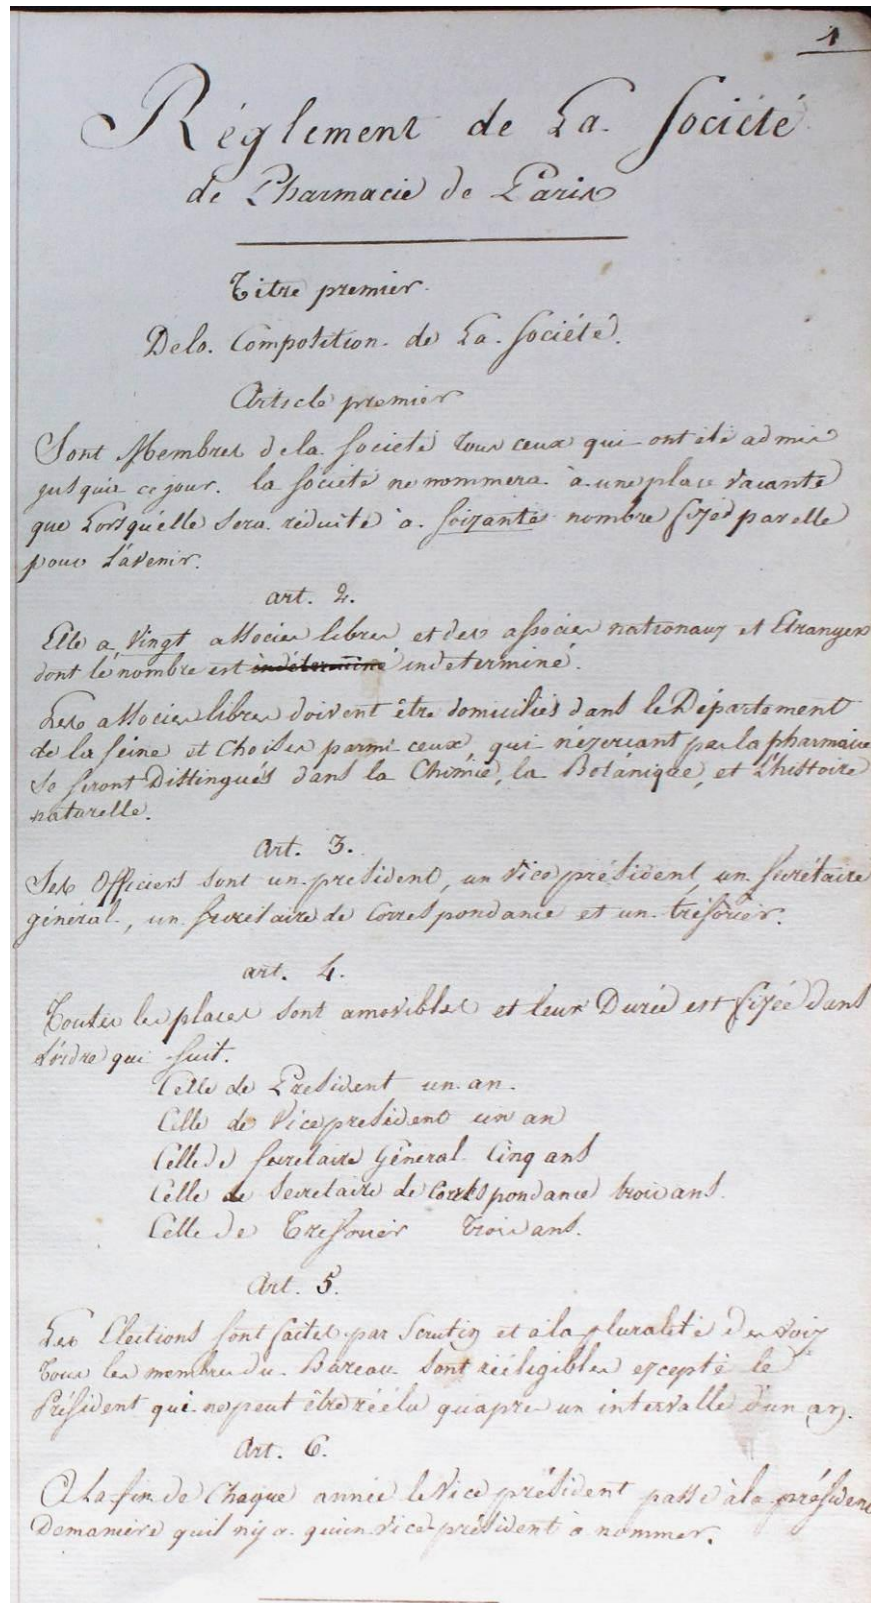 1
Réglement de La Société
de Pharmacie de Paris
Titre premier.
Dela Composition de La Société.
Article premier
Sont Membres de la Société tous ceux qui ont été admis
jusqu'à ce jour. la société ne nommera à une place vacante
que Lorsqu'elle sera réduite à soixante nombre fixé par elle
pour L'avenir.
art. 2.
Elle a Vingt associés libres et des associés nationaux et Etrangers
dont le nombre est indéterminé indeterminé.
Les associés libres doivent être domiciliés dans le Département
de la seine et Choisis parmi ceux qui n'exercant pas la pharmacie
se seront Distingués dans la Chimie, la Botánique, et L'histoire
naturelle.
Art. 3.
Ses Officiers sont un president, un vice président un secrétaire
général, un secretaire de Correspondance et un trésorier.
art. 4.
Toutes les places sont amovibles et leur Durée est fixée dans
L'ordre qui suit.
Celle de President un an.
Celle de Vice president un an
Celle de secretaire Géneral Cinq ans
Celle de Secretaire de Correspondance trois ans.
Celle de Tresorier Trois ans.
Art. 5.
Les Elections sont faites par Scrutin et à la pluralité des voix
Tous les membres du Bureau sont rééligibles excepté le
Président qui ne peut être réélu qu'apres un intervalle d'un an.
Art. 6.
A La fin de Chaque année le Vice président passe à la présidence
Demanière quil n'y a qu'un vice-président à nommer.